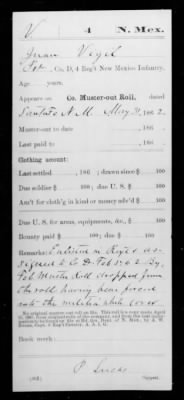 V | 4 | N. Mex.
Juan Vigil
Pvt., Co. D, 4 Reg't New Mexico Infantry.
Age years.
Appears on Co. Muster-out Roll, dated
Santa Fe N.M. May 31, 1862.
Muster-out to date , 186 .
Last paid to , 186 .
Clothing account:
Last settled , 186 ; drawn since $ 100
Due soldier $ 100; due U. S. $ 100
Am't for cloth'g in kind or money adv'd $ 100
Due U. S. for arms, equipments, &c., $ 100
Bounty paid $ 100; due $ 100
Remarks: Enlisted in
signed to Co D Feb 1862 By
Feb Muster Roll dropped from
the roll having been forced
into the militia
Book mark:
(362) Copyist.